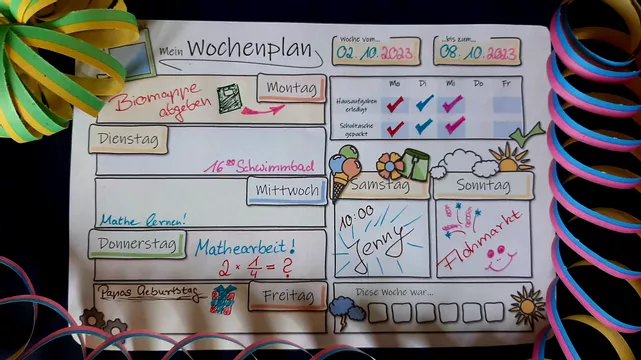 mein Wochenplan
Woche vom...
02.10.2023
...bis zum...
08.10.2023
Montag
Biomappe
abgeben
Mo Di Mi Do Fr
Hausaufgaben
erledigt
Schultasche
gepackt
Dienstag
16⁰⁰ Schwimmbad
Mittwoch
Mathe lernen!
Donnerstag
Mathearbeit!
2 * 1/4 = ?
Freitag
Papas Geburtstag
Samstag
10:00
Jenny
Sonntag
Flohmarkt
Diese Woche war...